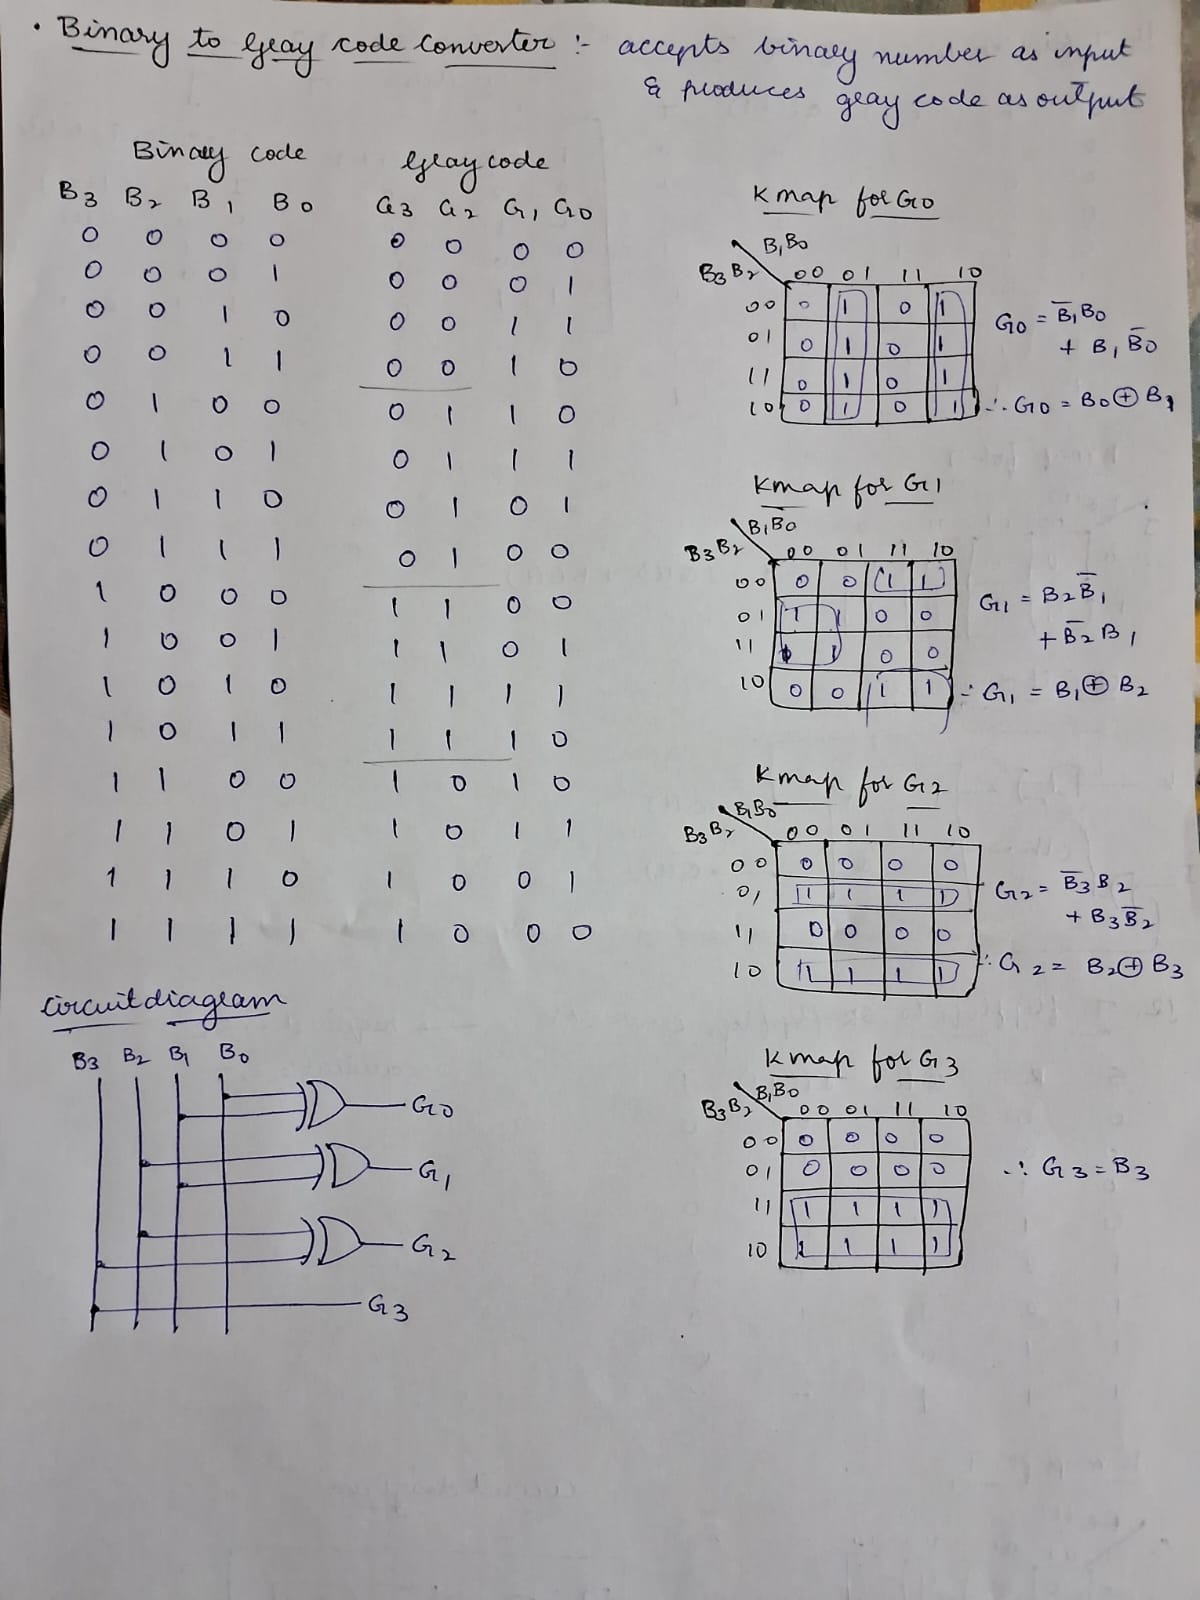 • Binary to Gray code Converter :- accepts binary number as input
& produces gray code as output
Binary code Gray code
B3 B2 B1 B0 G3 G2 G1 G0
0 0 0 0 0 0 0 0
0 0 0 1 0 0 0 1
0 0 1 0 0 0 1 1
0 0 1 1 0 0 1 0
0 1 0 0 0 1 1 0
0 1 0 1 0 1 1 1
0 1 1 0 0 1 0 1
0 1 1 1 0 1 0 0
1 0 0 0 1 1 0 0
1 0 0 1 1 1 0 1
1 0 1 0 1 1 1 1
1 0 1 1 1 1 1 0
1 1 0 0 1 0 1 0
1 1 0 1 1 0 1 1
1 1 1 0 1 0 0 1
1 1 1 1 1 0 0 0
Circuit diagram
B3 B2 B1 B0
G0
G1
G2
G3
K map for G0
B1B0
B3B2 00 01 11 10
00 0 1 0 1
01 0 1 0 1
11 0 1 0 1
10 0 1 0 1
G0 = B̅1B0
+ B1B̅0
∴ G0 = B0 ⊕ B1
Kmap for G1
B1B0
B3B2 00 01 11 10
00 0 0 1 1
01 1 1 0 0
11 1 1 0 0
10 0 0 1 1
G1 = B2B̅1
+ B̅2B1
∴ G1 = B1 ⊕ B2
Kmap for G2
B1B0
B3B2 00 01 11 10
00 0 0 0 0
01 1 1 1 1
11 0 0 0 0
10 1 1 1 1
G2 = B̅3B2
+ B3B̅2
∴ G2 = B2 ⊕ B3
Kmap for G3
B1B0
B3B2 00 01 11 10
00 0 0 0 0
01 0 0 0 0
11 1 1 1 1
10 1 1 1 1
∴ G3 = B3